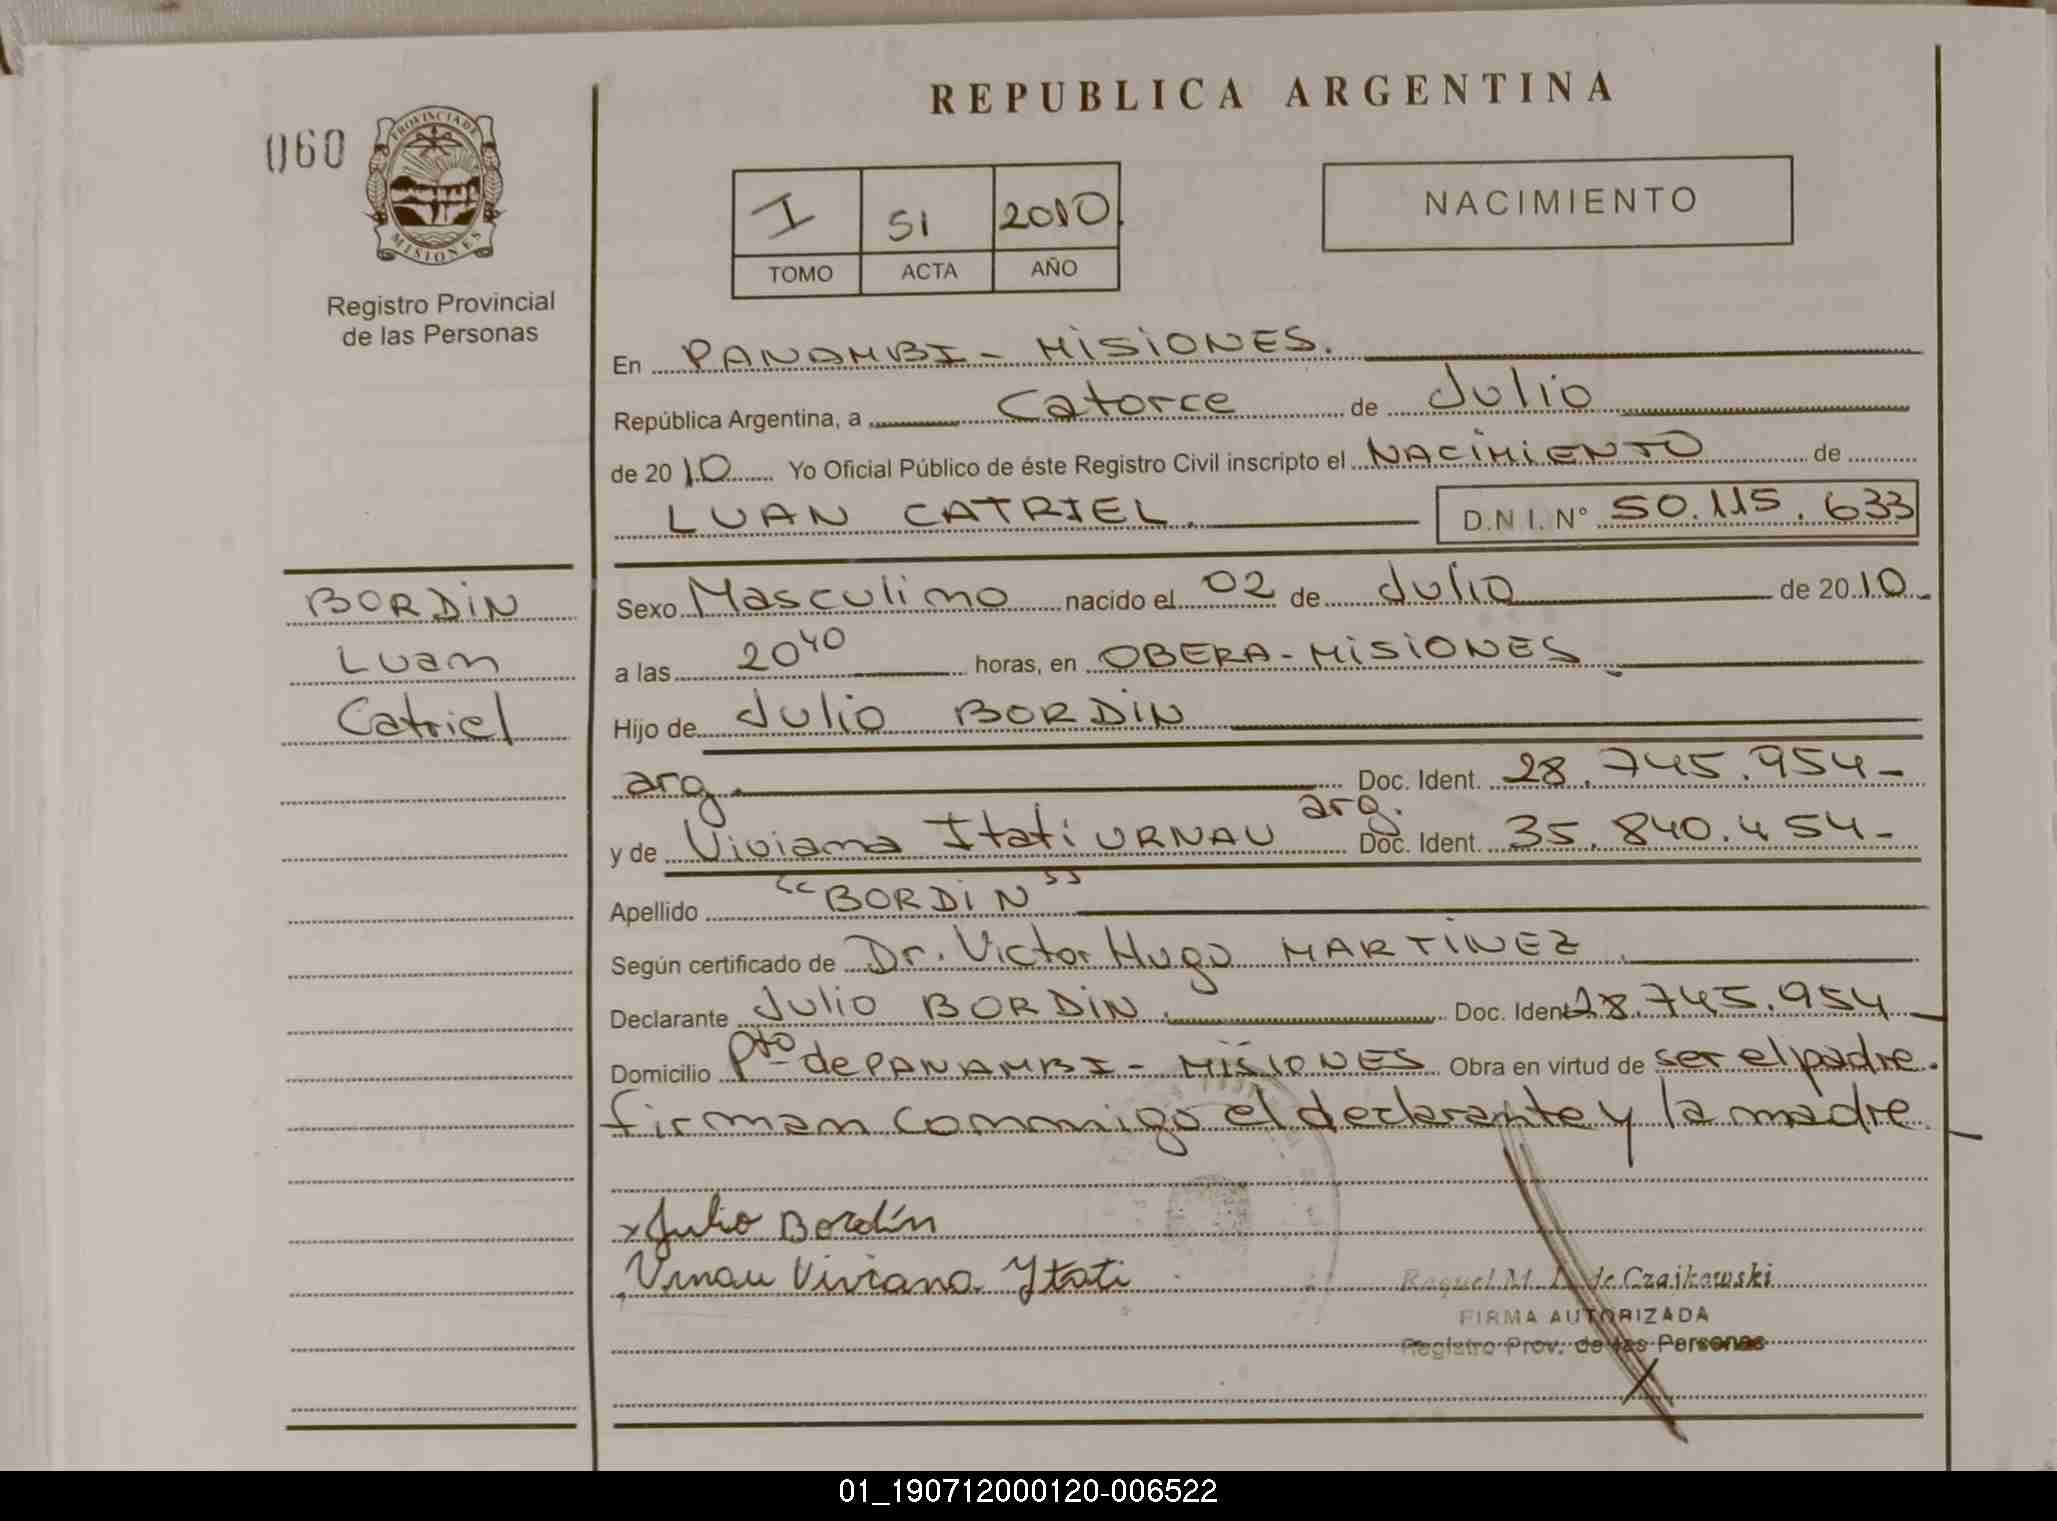 REPUBLICA ARGENTINA
060
PROVINCIA DE
MISIONES
Registro Provincial
de las Personas
I 51 2010
TOMO ACTA AÑO
NACIMIENTO
En PANAMBI - MISIONES.
República Argentina, a Catorce de Julio
de 2010 Yo Oficial Público de éste Registro Civil inscripto el NACIMIENTO de
LUAN CATRIEL. D.N I. N° 50.115.633
BORDIN
Luan
Catriel
Sexo Masculino nacido el 02 de Julio de 2010
a las 20 40 horas, en OBERA - MISIONES
Hijo de Julio BORDIN
arg. Doc. Ident. 28.745.954-
y de Viviana Itati URNAU arg. Doc. Ident. 35.840.454-
Apellido "BORDIN"
Según certificado de Dr. Victor Hugo MARTINEZ
Declarante Julio BORDIN. Doc. Ident 28.745.954
Domicilio Pto de PANAMBI - MISIONES Obra en virtud de ser el padre.
firman conmigo el declarante y la madre
x Julio Bordín
Urnau Viviana Ytati
Raquel M. de Czajkowski
FIRMA AUTORIZADA
Registro Prov. de las Personas
01_190712000120-006522